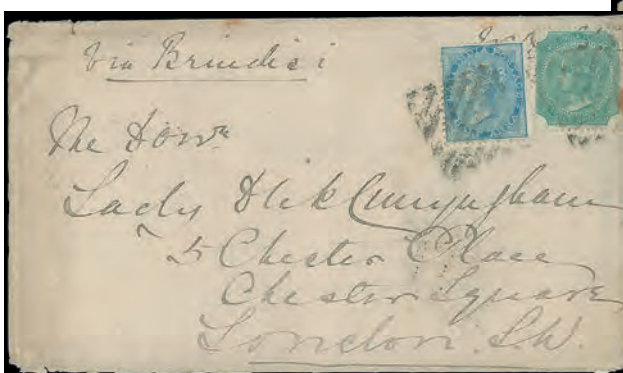 Via Brindisi
The Honble
Lady Dick Cunyngham
5 Chester Place
Chester Square
London. S.W.